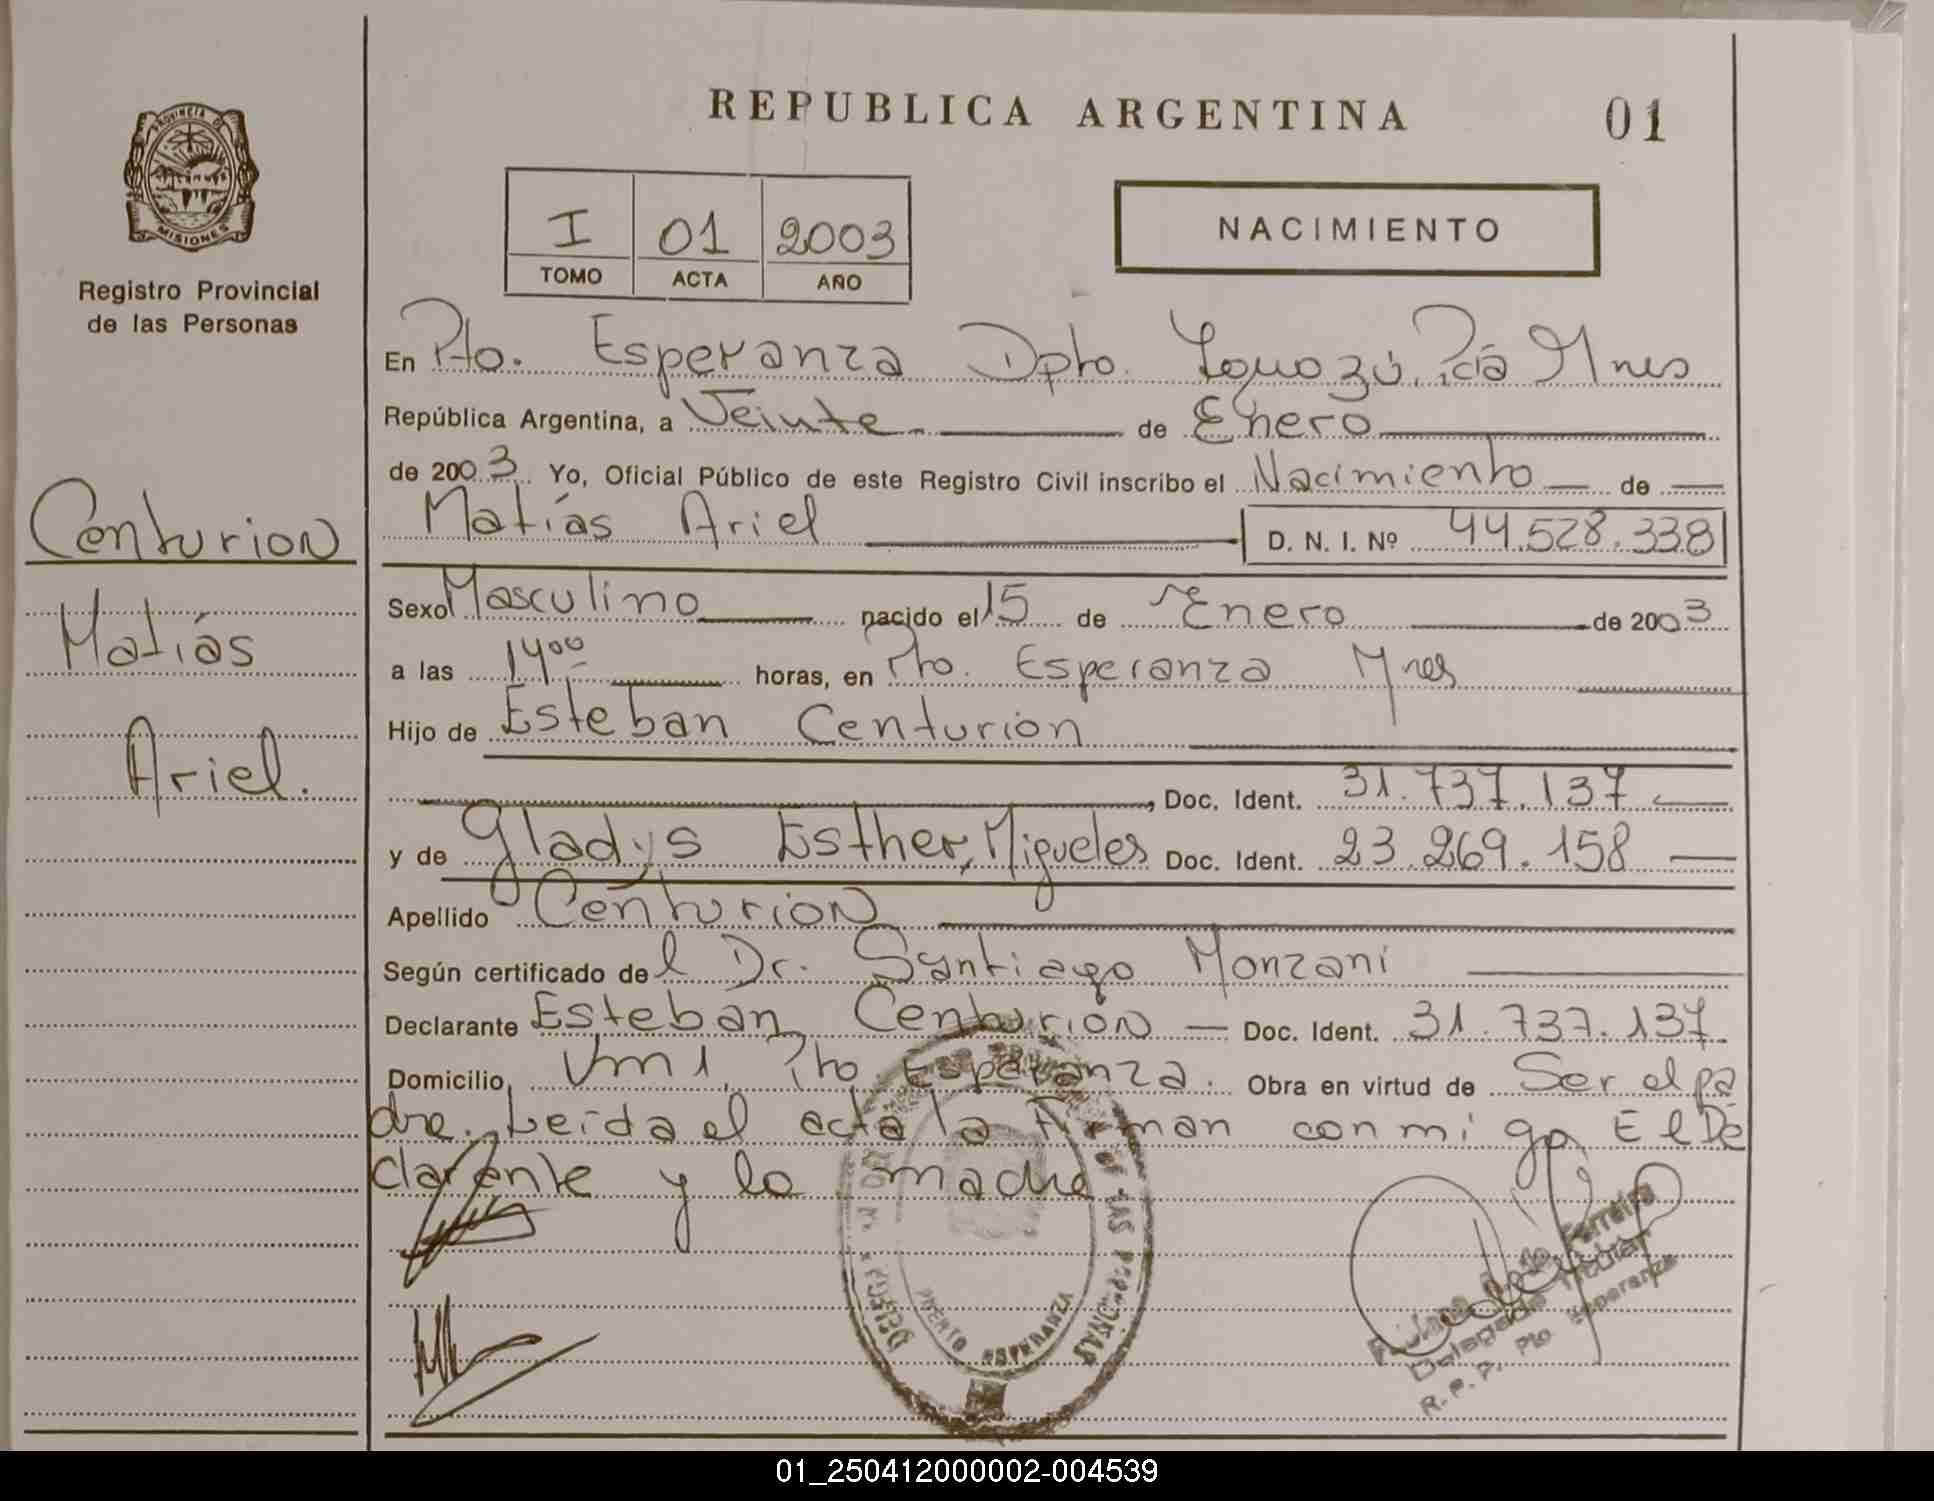 REPUBLICA ARGENTINA
01
PROVINCIA DE
MISIONES
Registro Provincial
de las Personas
I 01 2003
TOMO ACTA AÑO
NACIMIENTO
En Pto. Esperanza Dpto. Iguazú, Pcia Mnes
República Argentina, a Veinte de Enero
de 2003. Yo, Oficial Público de este Registro Civil inscribo el Nacimiento de
Matías Ariel D. N. I. Nº 44.528.338
Centurion
Matías
Ariel.
Sexo Masculino nacido el 15 de Enero de 2003
a las 14 00 horas, en Pto. Esperanza Mnes
Hijo de Esteban Centurion
, Doc. Ident. 31.737.137
y de Gladys Esther, Migueles Doc. Ident. 23.269.158
Apellido Centurion
Según certificado del Dr. Santiago Monzani
Declarante Esteban Centurion — Doc. Ident. 31.737.137
Domicilio, Vm 1, Pto Esperanza. Obra en virtud de Ser el pa
dre. Leida el acta la Firman conmigo El De
clarante y la madre
DE LAS PERSONAS
PUERTO ESPERANZA
Ferreira
Delegada Titular
R. P. P. Pto Esperanza
01_250412000002-004539